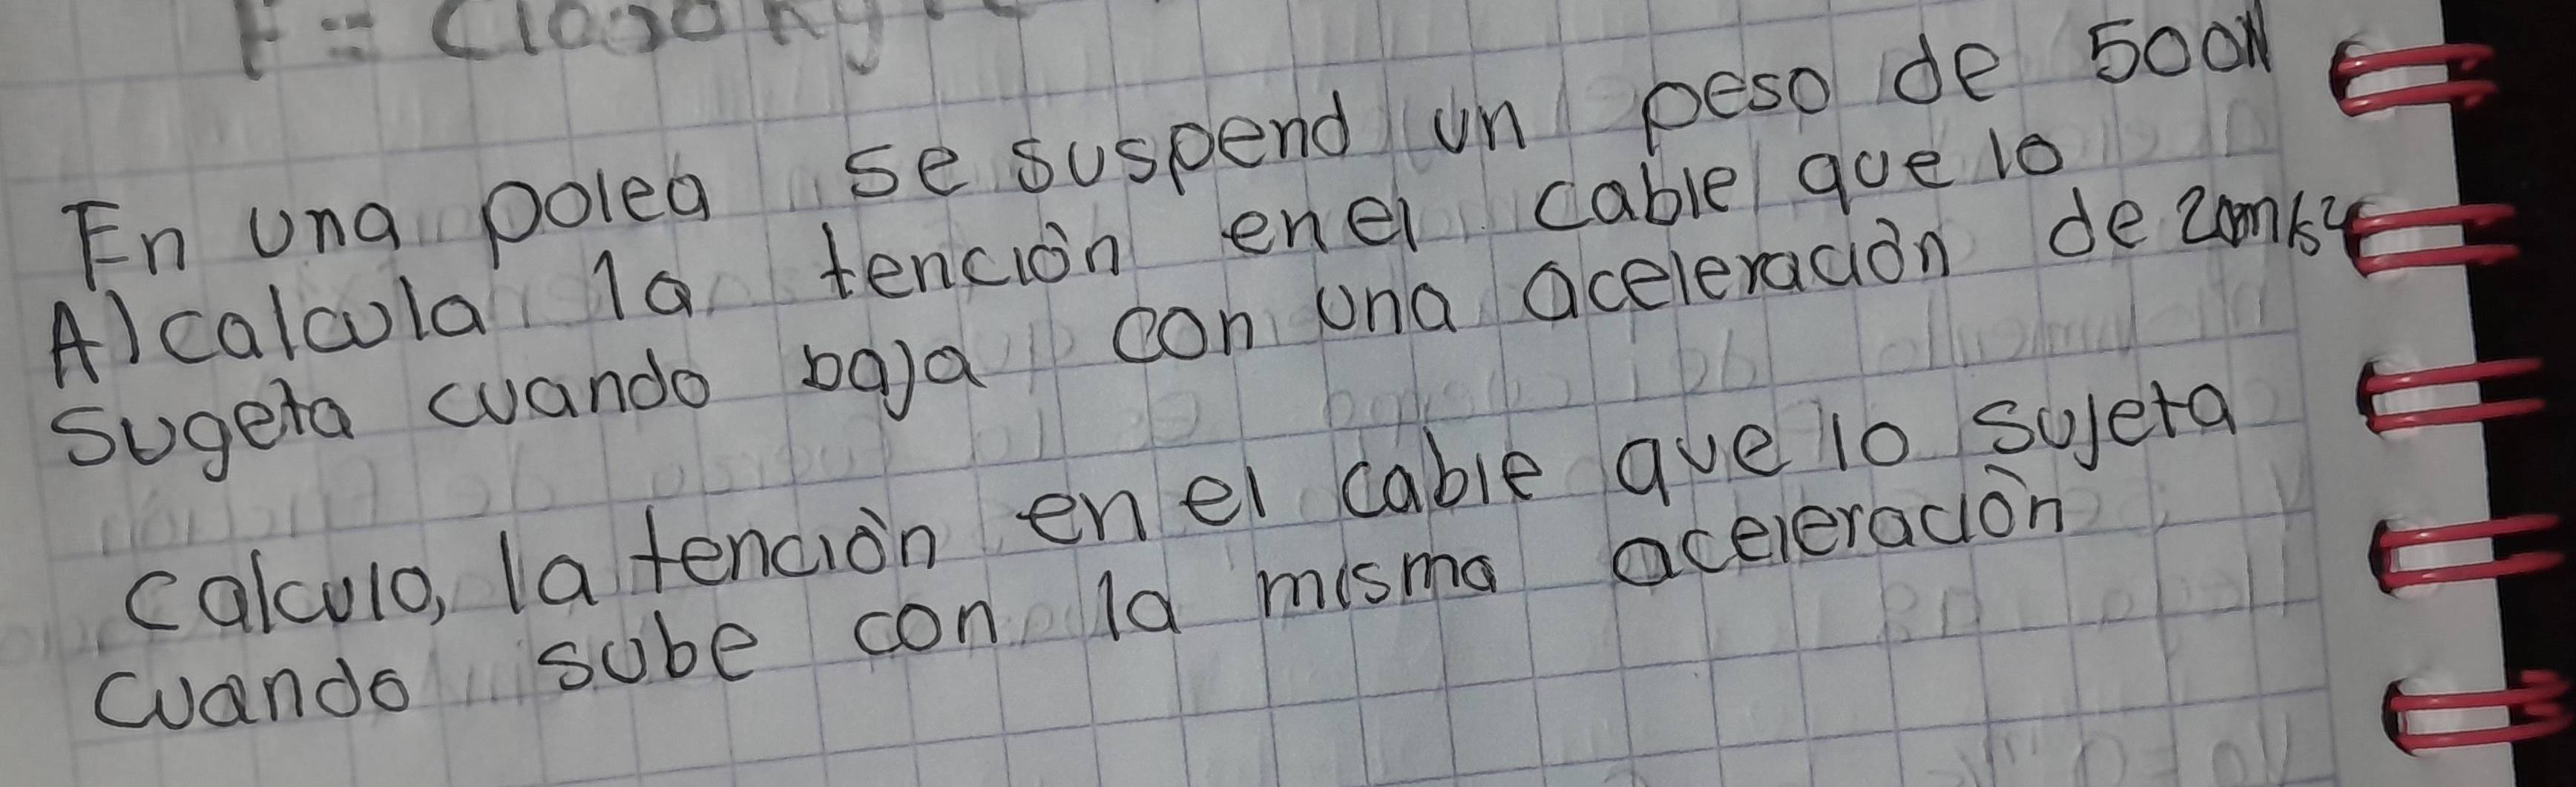 F = (1000 kg
En una polea se suspend un peso de 500N
A) calcula la tención en el cable que lo
sugeta cuando baja con una aceleración de 2m/s2
calculo, la tención en el cable que lo sujeta
cuando sube con la misma aceleración